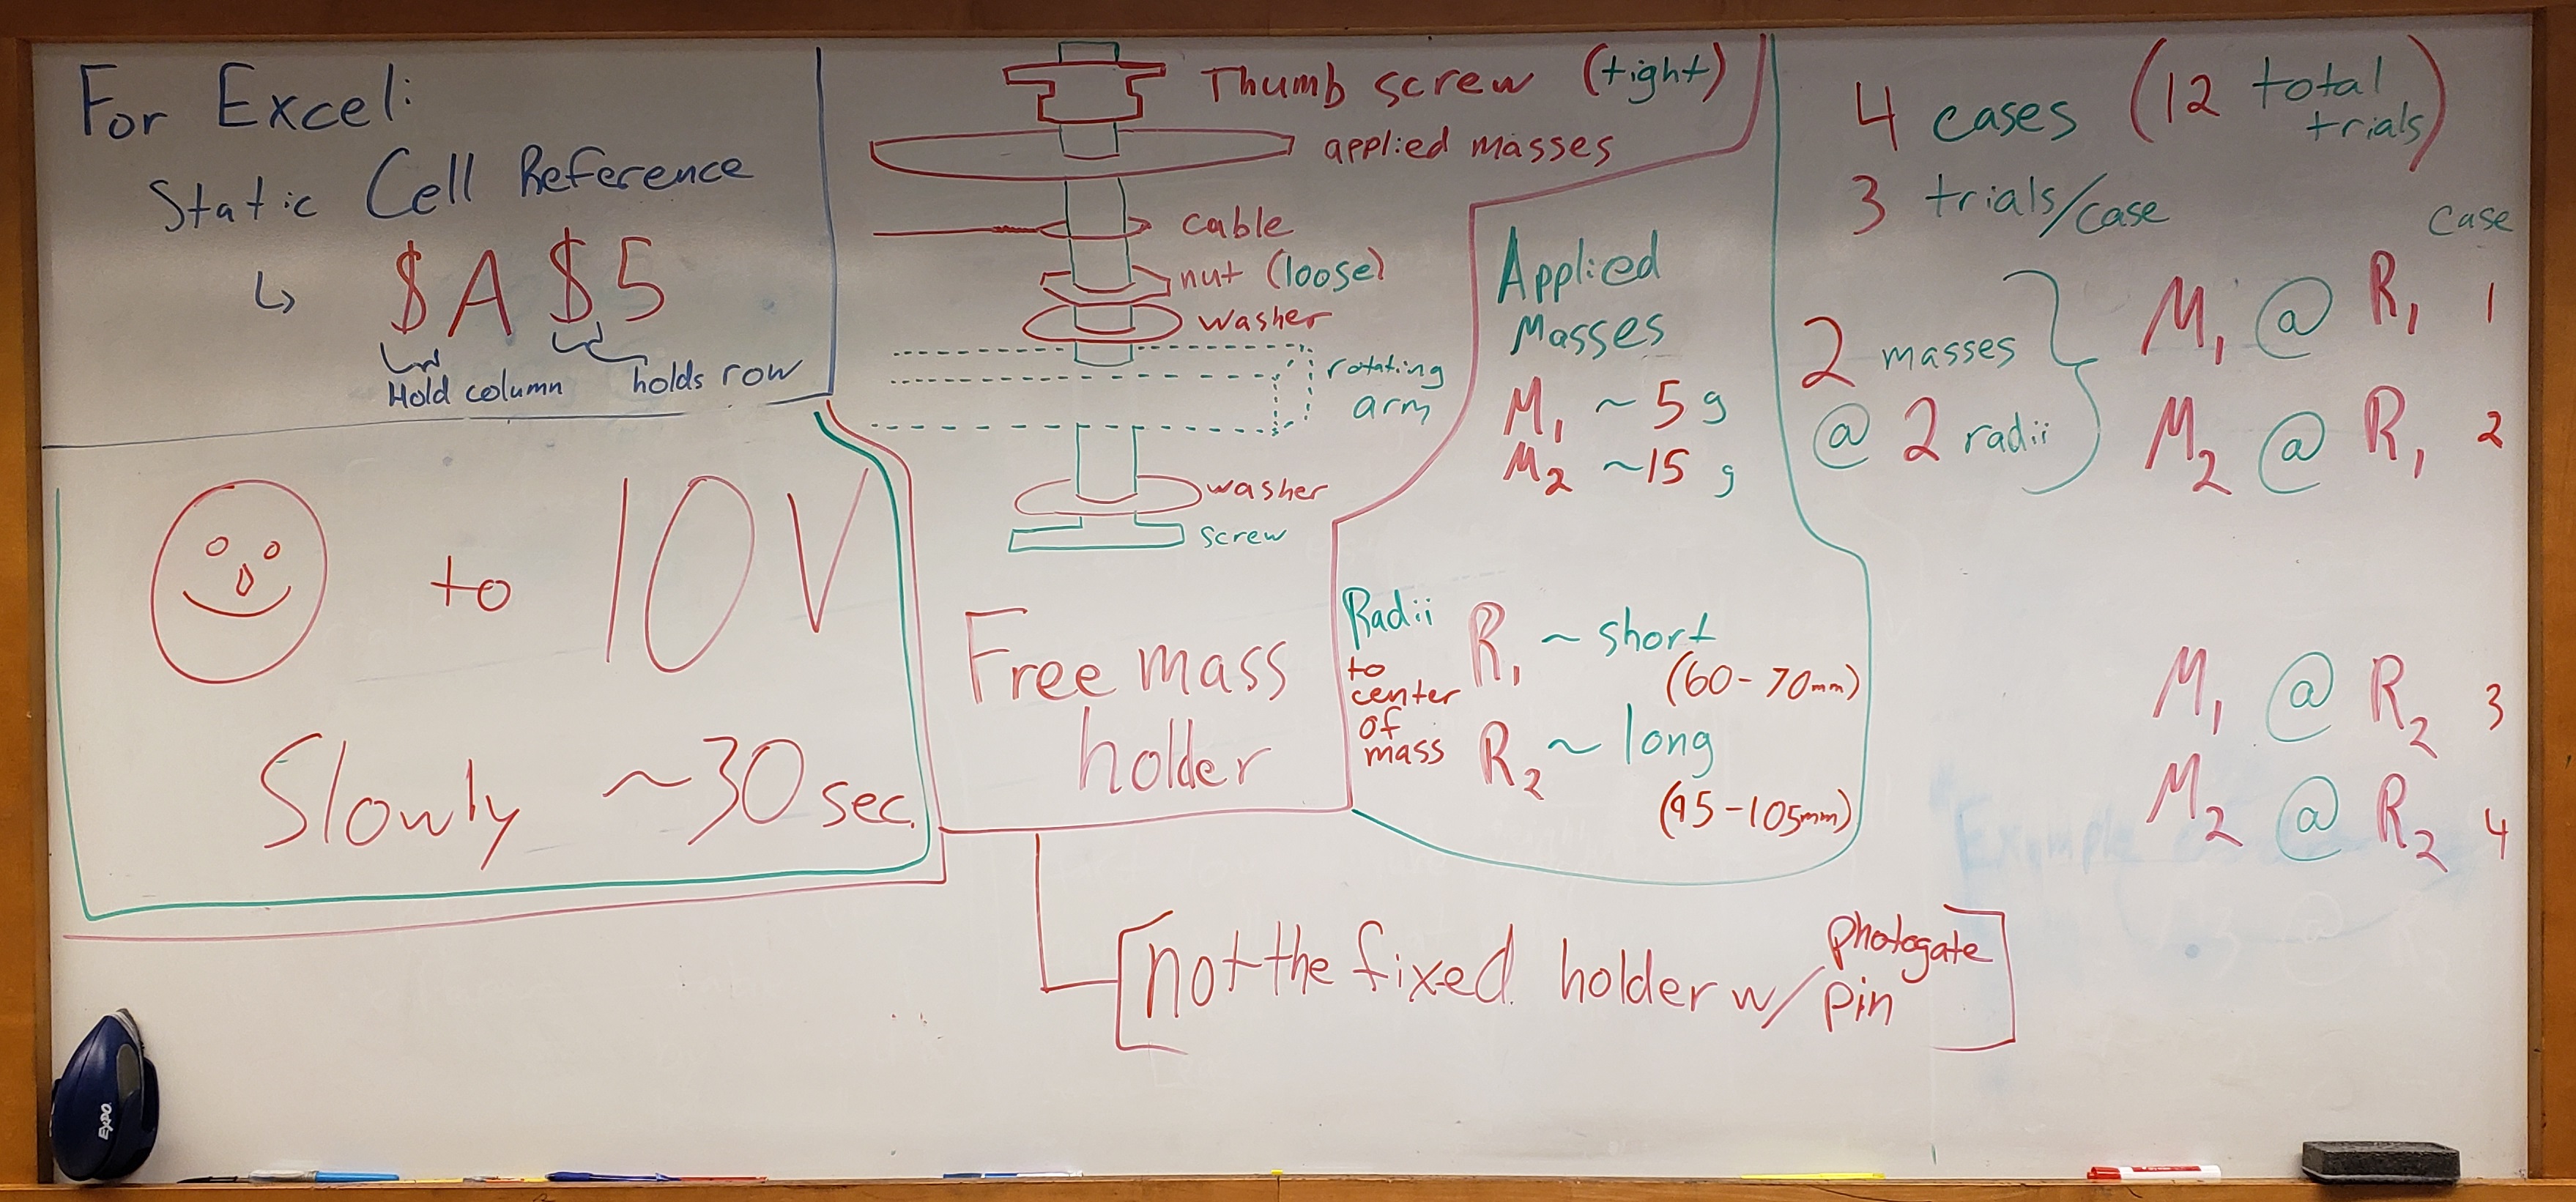 For Excel:
Static Cell Reference
↳ $A$5
Hold column holds row
to 10V
Slowly ~30 sec.
Thumb screw (tight)
applied masses
cable
nut (loose)
washer
rotating
arm
washer
screw
Free mass
holder
[not the fixed holder w/ photogate
pin]
Applied
Masses
M₁ ~ 5 g
M₂ ~15 g
Radii
to
center
of
mass
R₁ ~ short
(60-70mm)
R₂ ~ long
(95-105mm)
4 cases (12 total
trials)
3 trials/case
2 masses
@ 2 radii
case
M₁ @ R₁ 1
M₂ @ R₁ 2
M₁ @ R₂ 3
M₂ @ R₂ 4
EXPO